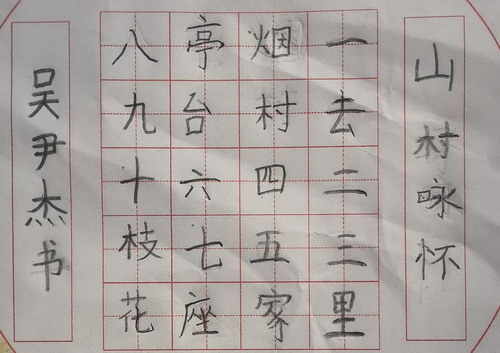 山村咏怀
一去二三里
烟村四五家
亭台六七座
八九十枝花
吴尹杰书